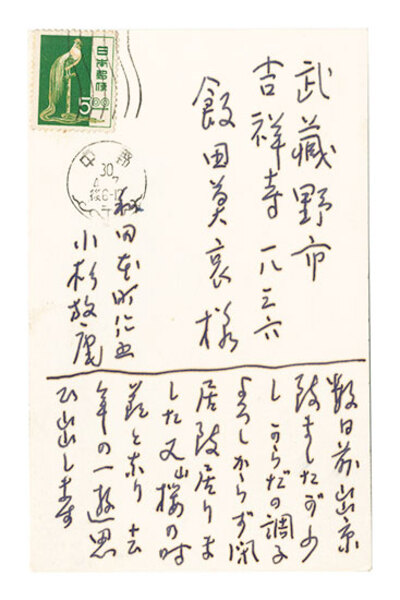 武蔵野市
吉祥寺一八三六
飯田莫哀様
小杉放庵
数日前出京
致ましたが少
し からだの調子
よろしからず閑
居致居りま
した 又山桜の時
節となり 去
年の一遊思
ひ出します
日本郵便
5.00
中野
30
後6-12